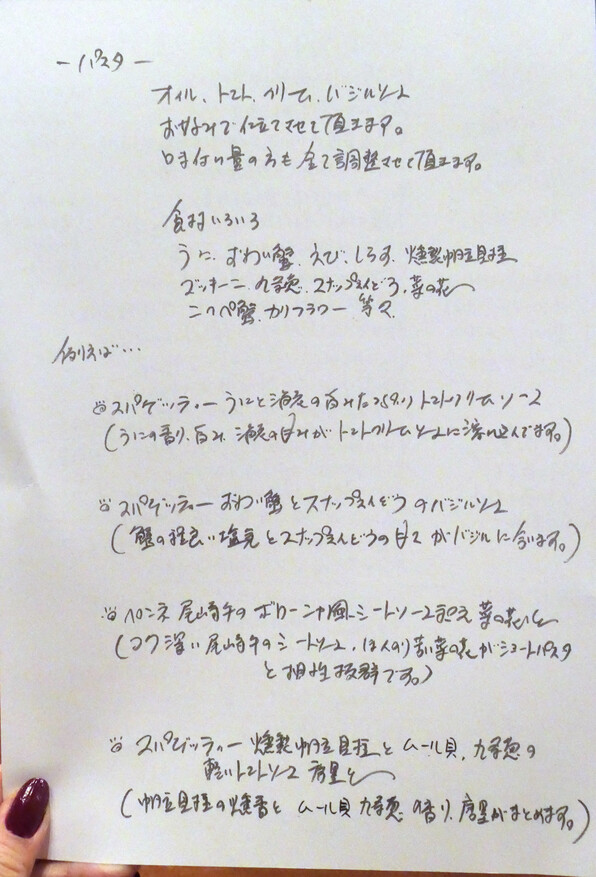 ーパスター
オイル、トマト、クリーム、バジルソース
お好みで仕立てさせて頂きます。
味付け量の方も全て調整させて頂きます。
食材いろいろ
うに、ずわい蟹、えび、しらす、燻製帆立貝柱
ズッキーニ、九条葱、スナップえんどう、菜の花
こっぺ蟹、カリフラワー 等々
例えば…
スパゲッティー うにと海老の旨みたっぷりトマトクリームソース
(うにの香り、旨み、海老の甘みがトマトクリームソースに溶け込んでます。)
スパゲッティー ずわい蟹とスナップえんどうのバジルソース
(蟹の程良い塩気とスナップえんどうの甘さがバジルに合います。)
ペンネ 尾崎牛のボローニャ風ミートソース 菜の花と
(コク深い尾崎牛のミートソース、ほんのり苦い菜の花がショートパスタ
と相性抜群です。)
スパゲッティー 燻製帆立貝柱とムール貝、九条葱の
軽いトマトソース と
(帆立貝柱の燻香とムール貝 九条葱の香り、 がまとめます。)